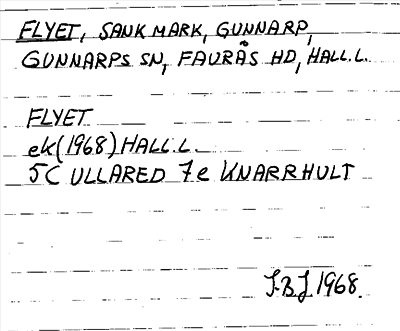 FLYET, SANK MARK, GUNNARP,
GUNNARPS SN, FAURÅS HD, HALL.L.
FLYET
ek(1968) HALL.L.
5C ULLARED 7e KNARRHULT
J.B.J 1968.